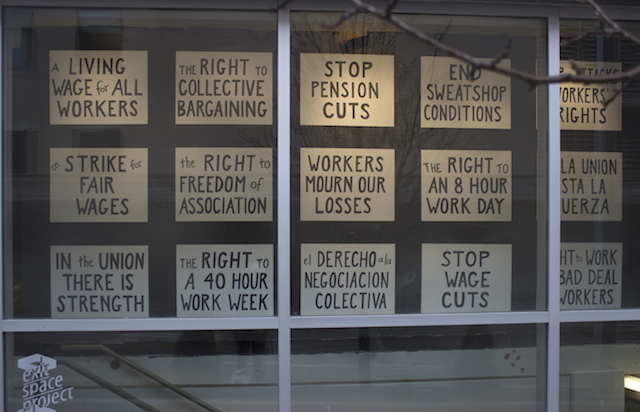 A LIVING
WAGE for ALL
WORKERS
THE RIGHT TO
COLLECTIVE
BARGAINING
STOP
PENSION
CUTS
END
SWEATSHOP
CONDITIONS
RIGHTS
on STRIKE for
FAIR
WAGES
the RIGHT to
FREEDOM of
ASSOCIATION
WORKERS
MOURN OUR
LOSSES
THE RIGHT TO
AN 8 HOUR
WORK DAY
LA UNION
LA
IN the UNION
THERE IS
STRENGTH
THE RIGHT TO
A 40 HOUR
WORK WEEK
el DERECHO a la
NEGOCIACION
COLECTIVA
STOP
WAGE
CUTS
to WORK
BAD DEAL
WORKERS
exit
space
project